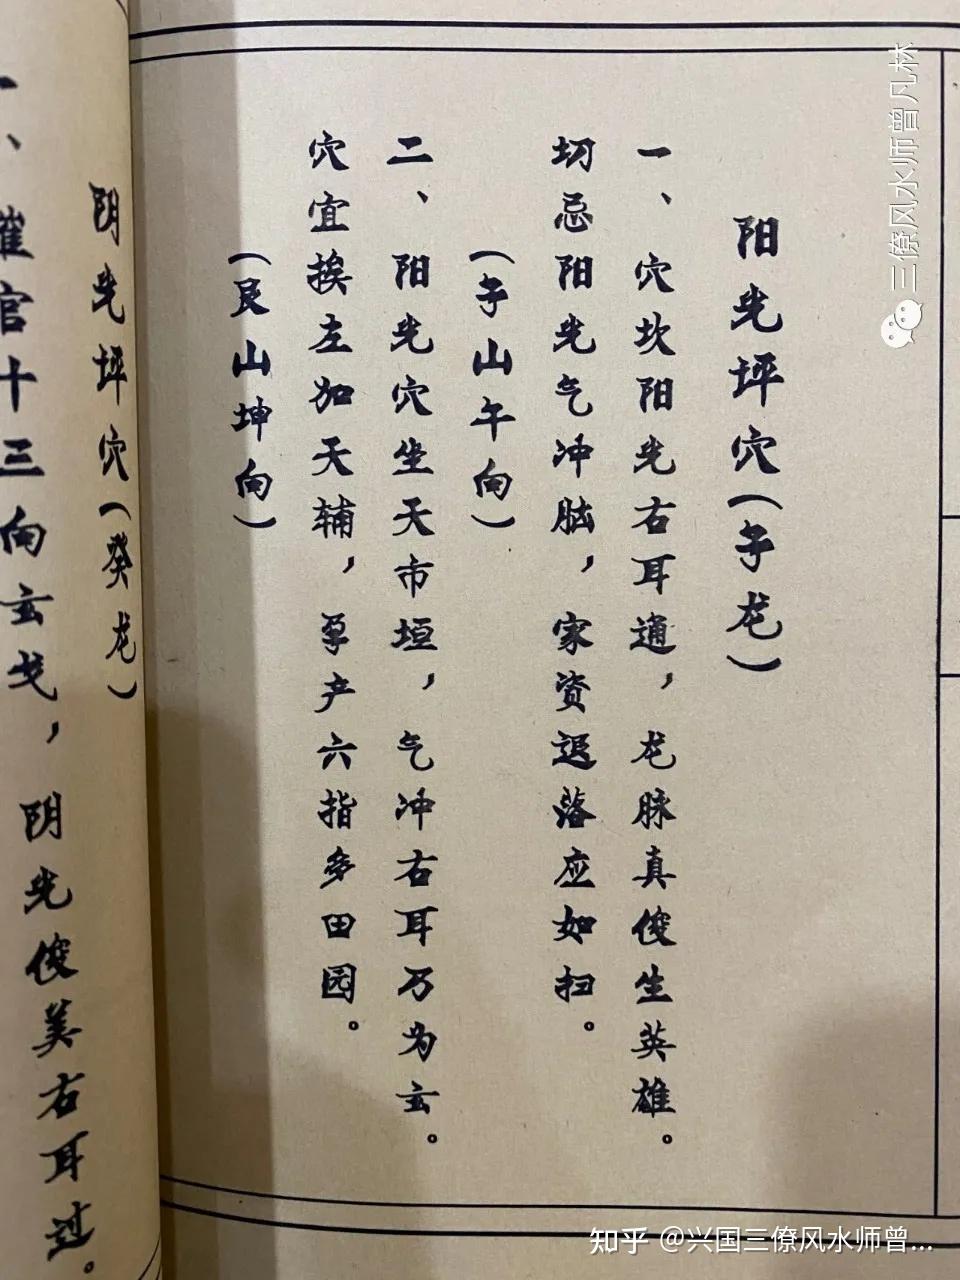 阳光坪穴(子龙)
一、穴坎阳光右耳通，龙脉真俊生英雄。
切忌阳光气冲脑，家资退落应如扫。
(子山午向)
二、阳光穴坐天市垣，气冲右耳万为玄。
穴宜挨左加天辅，孕产六指多田园。
(艮山坤向)
阴光坪穴(癸龙)
一、催官十三向玄戈，阴光俊美右耳过。
三僚风水师曾凡林
知乎 @兴国三僚风水师曾...